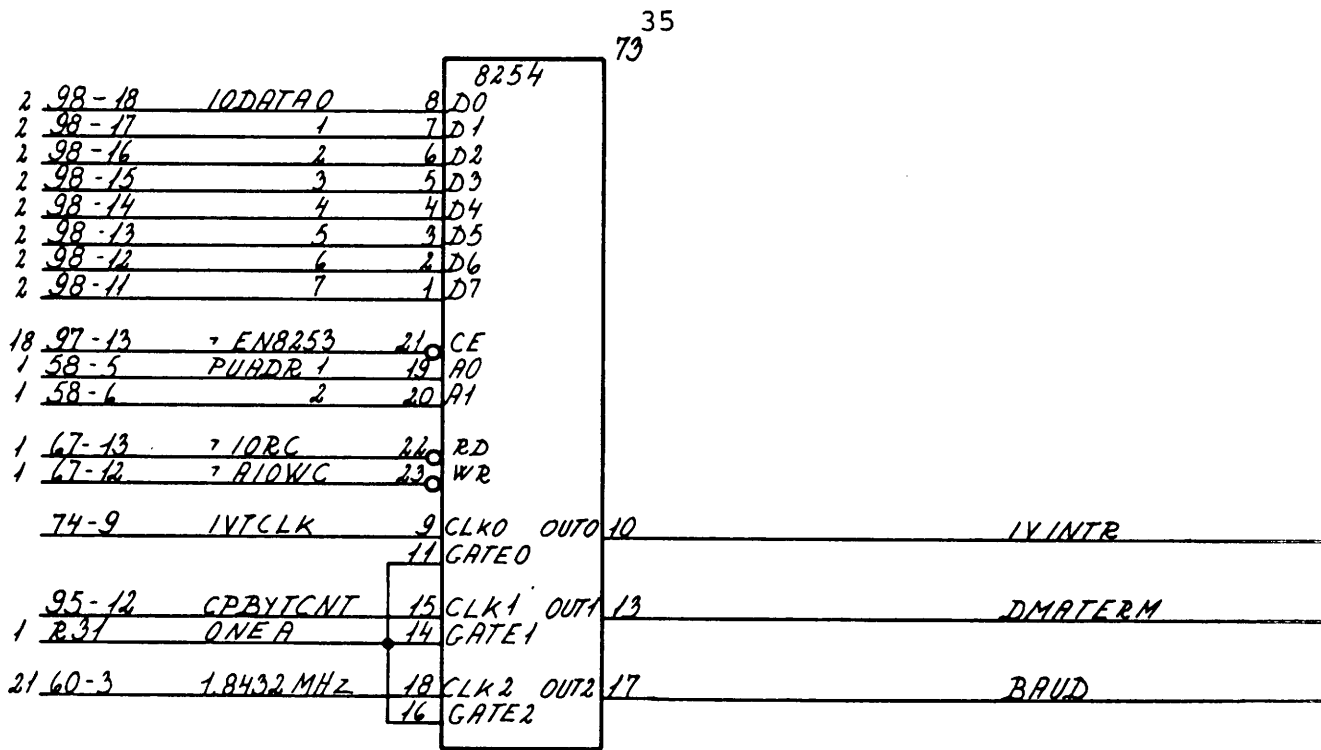 35
73
8254
2 98-18 IODATA0 8 D0
2 98-17 1 7 D1
2 98-16 2 6 D2
2 98-15 3 5 D3
2 98-14 4 4 D4
2 98-13 5 3 D5
2 98-12 6 2 D6
2 98-11 7 1 D7
18 97-13 ¬ EN8253 21 CE
1 58-5 PUADR 1 19 A0
1 58-6 2 20 A1
1 67-13 ¬ IORC 22 RD
1 67-12 ¬ AIOWC 23 WR
74-9 IVTCLK 9 CLK0 OUT0 10 IVINTR
11 GATE0
95-12 CPBYTCNT 15 CLK1 OUT1 13 DMATERM
1 R31 ONE A 14 GATE1
21 60-3 1.8432 MHz 18 CLK2 OUT2 17 BAUD
16 GATE2